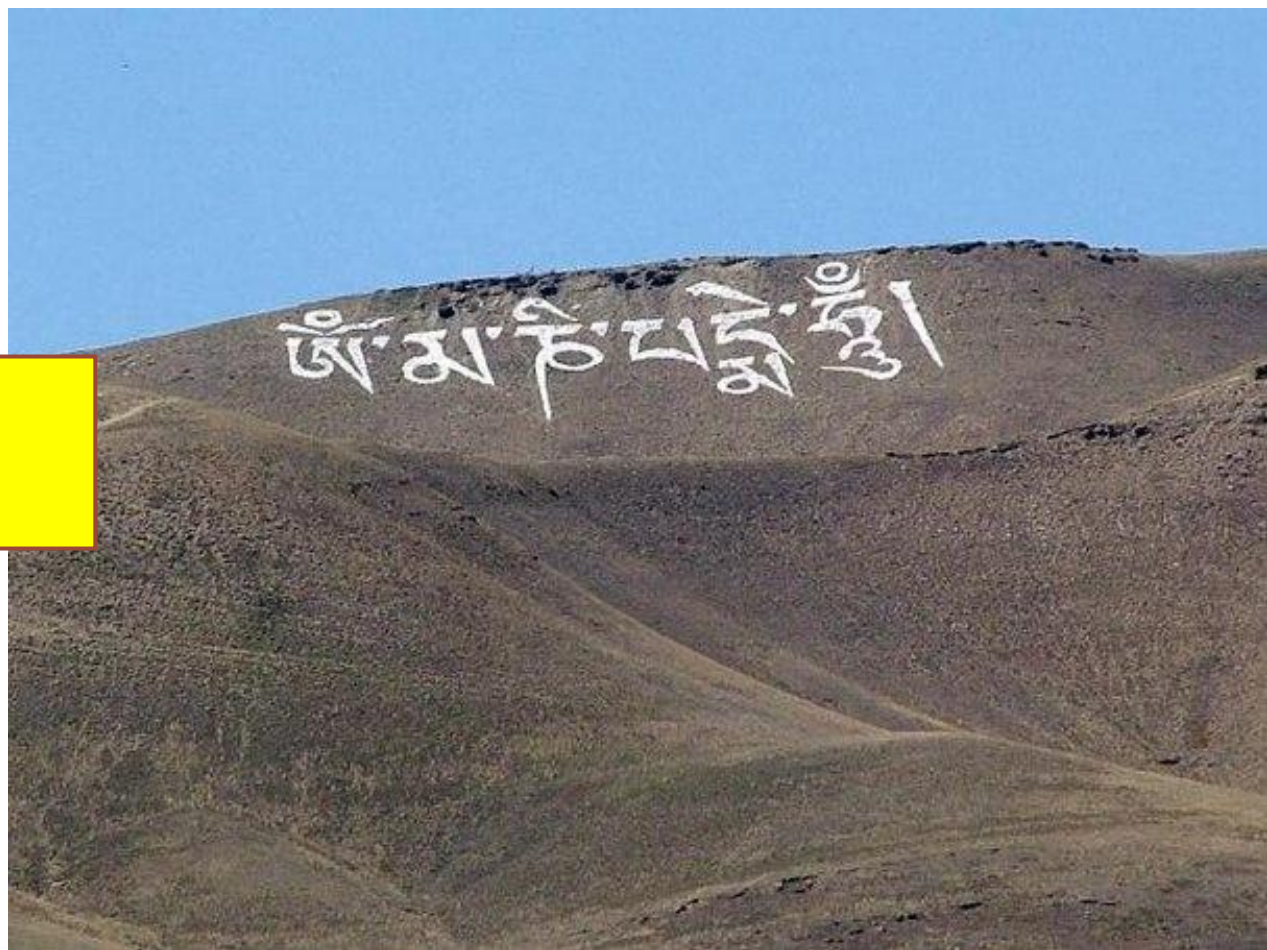 ༀ་མ་ཎི་པདྨེ་ཧཱུྃ།